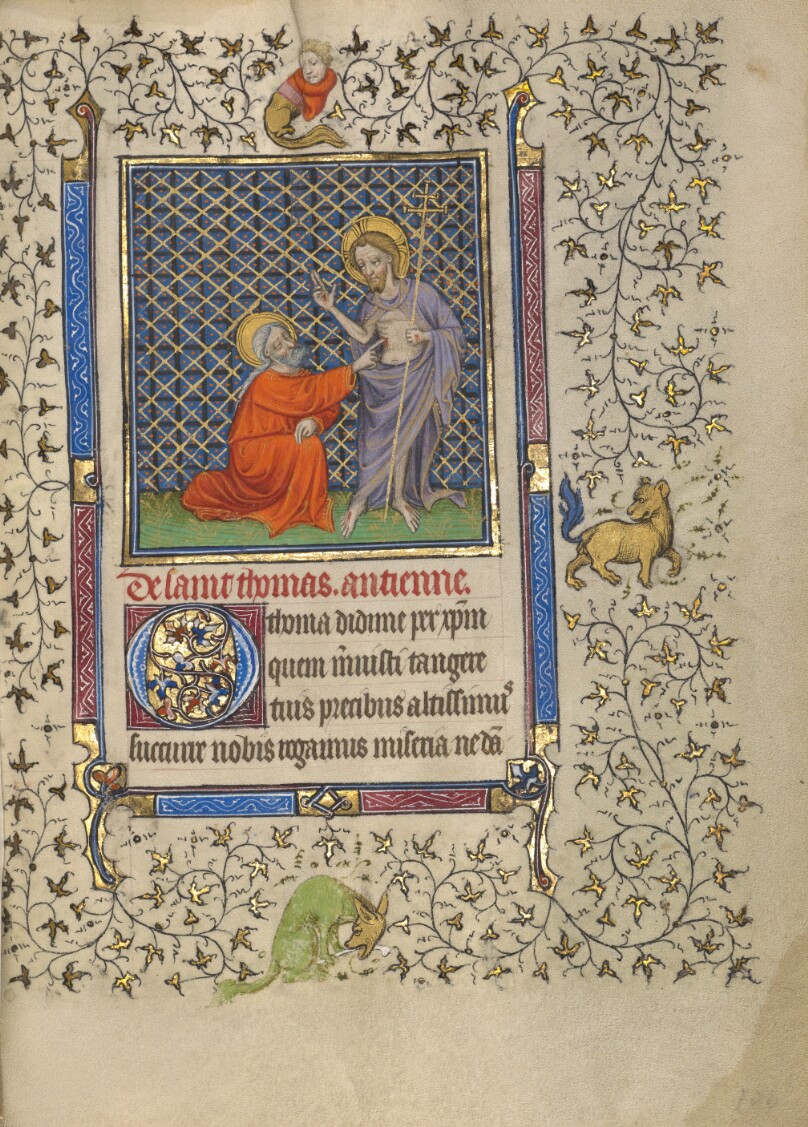 De saint thomas. antienne.
O thoma didime per xp̄m
quem m̄uisti tangere
tuis precibus altissimus
succurre nobis rogamus miseria ne dā